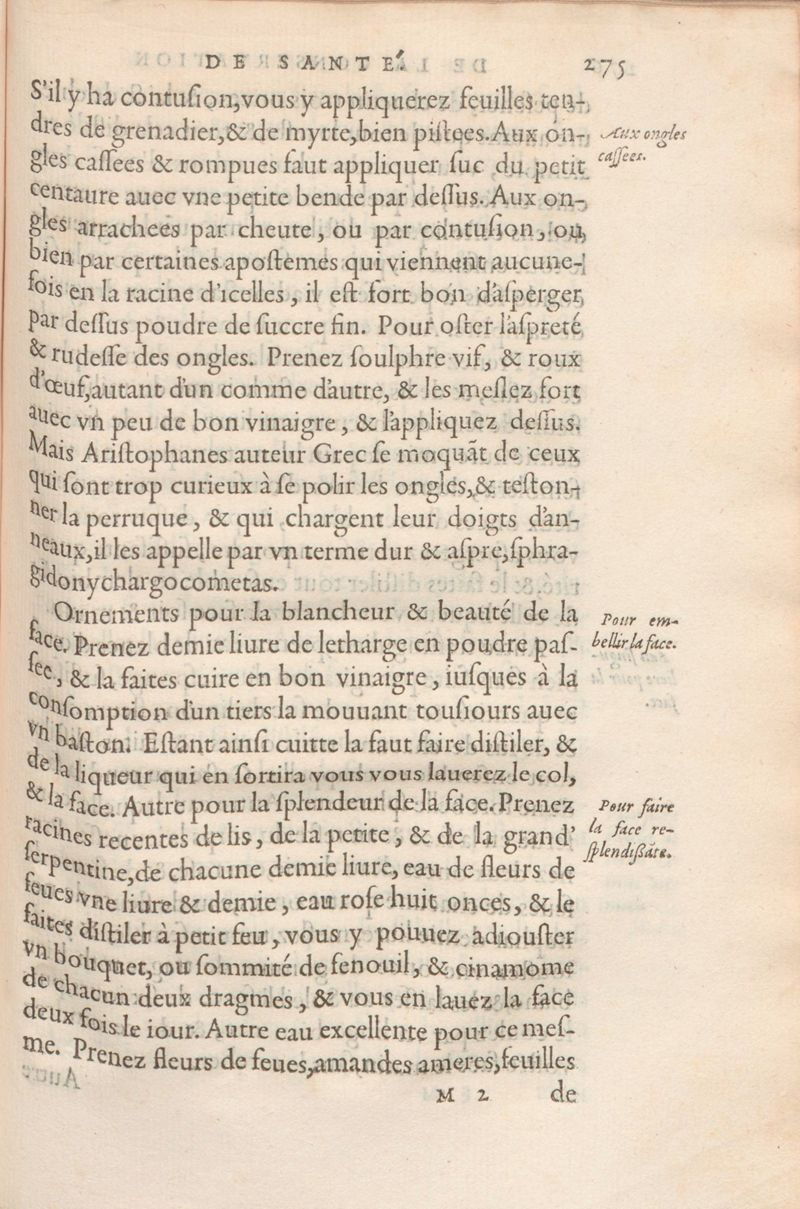 DE SANTÉ. 275
S'il y ha contuſion, vous y appliquerez feuilles ten-
dres de grenadier, & de myrte, bien piſtees. Aux on-
Aux ongles
caſſees.
gles caſſees & rompues faut appliquer ſuc du petit
centaure auec vne petite bende par deſſus. Aux on-
gles arrachees par cheute, ou par contuſion, ou
bien par certaines apoſtemes qui viennent aucune-
fois en la racine d'icelles, il eſt fort bon d'aſperger
par deſſus poudre de ſuccre fin. Pour oſter l'aſpreté
& rudeſſe des ongles. Prenez ſoulphre vif, & roux
d'œuf, autant d'un comme d'autre, & les meſlez fort
auec vn peu de bon vinaigre, & l'appliquez deſſus.
Mais Ariſtophanes auteur Grec ſe moquāt de ceux
qui ſont trop curieux à ſe polir les ongles, & teſton-
ner la perruque, & qui chargent leur doigts d'an-
neaux, il les appelle par vn terme dur & aſpre, ſphra-
gidonychargocometas.
Ornements pour la blancheur & beauté de la
Pour em-
bellir la face.
face. Prenez demie liure de letharge en poudre paſ-
ſee, & la faites cuire en bon vinaigre, iuſques à la
conſomption d'un tiers la mouuant touſiours auec
vn baſton. Eſtant ainſi cuitte la faut faire diſtiler, &
de la liqueur qui en ſortira vous vous lauerez le col,
& la face. Autre pour la ſplendeur de la face. Prenez
Pour faire
la face re-
ſplendiſsāte.
racines recentes de lis, de la petite, & de la grand'
ſerpentine, de chacune demie liure, eau de fleurs de
feues vne liure & demie, eau roſe huit onces, & le
faites diſtiler à petit feu, vous y pouuez adiouſter
vn bouquet, ou ſommité de fenouil, & cinamome
de chacun deux dragmes, & vous en lauez la face
deux fois le iour. Autre eau excellente pour ce meſ-
me. Prenez fleurs de feues, amandes ameres, feuilles
M 2 de